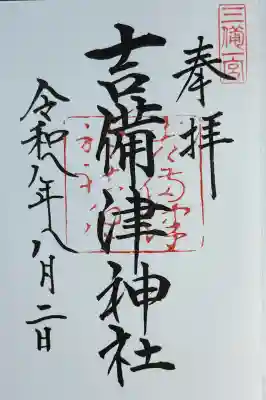 三備一宮
奉拝
吉備津神社
令和八年八月二日